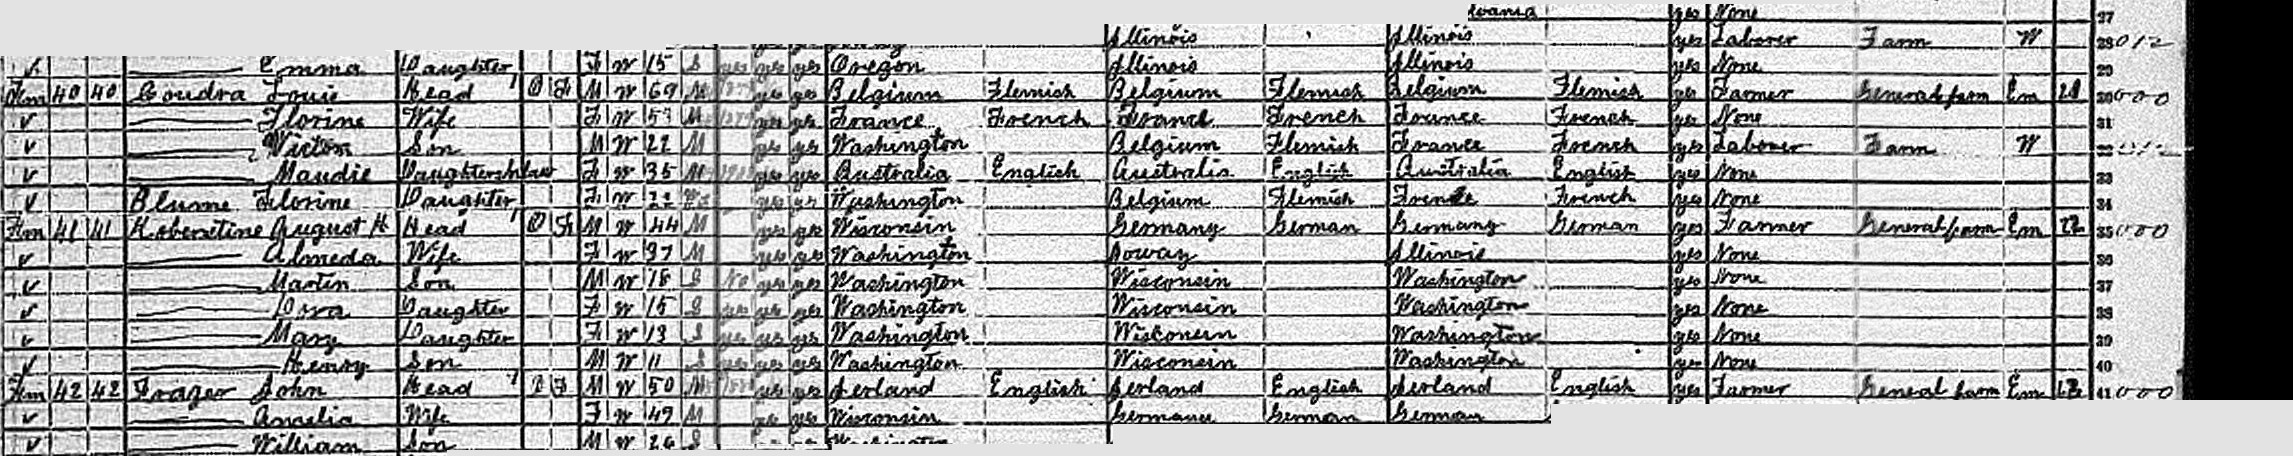 lvania yes None 37
Illinois Illinois yes Laborer Farm W 28 012
Emma Daughter F W 15 S yes yes yes Oregon Illinois Illinois yes None 29
Fm 40 40 Coudra Louie Head O F M W 69 M yes yes Belgium Flemish Belgium Flemish Belgium Flemish yes Farmer General farm Em 30 000
Florine Wife F W M yes yes France French France French France French yes None 31
Victor Son M W 22 M yes yes Washington Belgium Flemish France French yes Laborer Farm W
Maudie Daughterinlaw F W 35 M yes yes Australia English Australia English Australia English yes None 33
Blume Florine Daughter F W yes yes Washington Belgium Flemish France French yes None 34
Fm 41 41 Koberstine August H Head O F M W 44 M yes yes Wisconsin Germany German Germany German yes Farmer General farm Em 35 000
Almeda Wife F W 37 M yes yes Washington Ioway Illinois yes None 36
Martin Son M W 18 S No yes yes Washington Wisconsin Washington yes None 37
Daughter F W 15 S yes yes yes Washington Wisconsin Washington yes None 38
Mary Daughter F W 13 S yes yes yes Washington Wisconsin Washington yes None 39
Henry Son M W 11 S yes yes yes Washington Wisconsin Washington yes None 40
Fm 42 42 John Head F M W 50 M yes yes Ierland English Ierland English Ierland English yes Farmer General farm Em 41 000
Amelia Wife F W 49 M yes yes Wisconsin Germany German German
William Son M W 26 S Washington